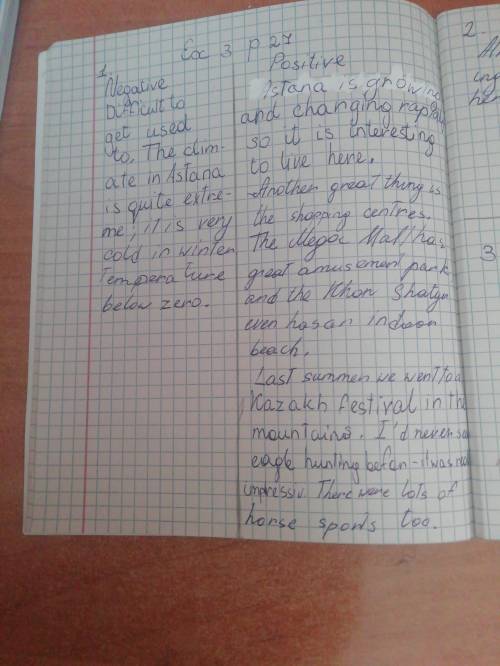 Exc 3 p 27
1.
Negative
Difficult to
get used
to. The clim-
ate in Astana
is quite extre-
me, it is very
cold in winter
temperature
below zero.
Positive
Astana is growing
and changing rapidly
so it is interesting
to live here.
Another great thing is
the shopping centres.
The Megoc Mall has
great amusement park
and the Khon Shatyr
even has an indoor
beach.
Last summer we went to a
Kazakh festival in the
mountains. I'd never
eagle hunting before - it was
impressiv. There were lots of
horse sports too.
2.
3